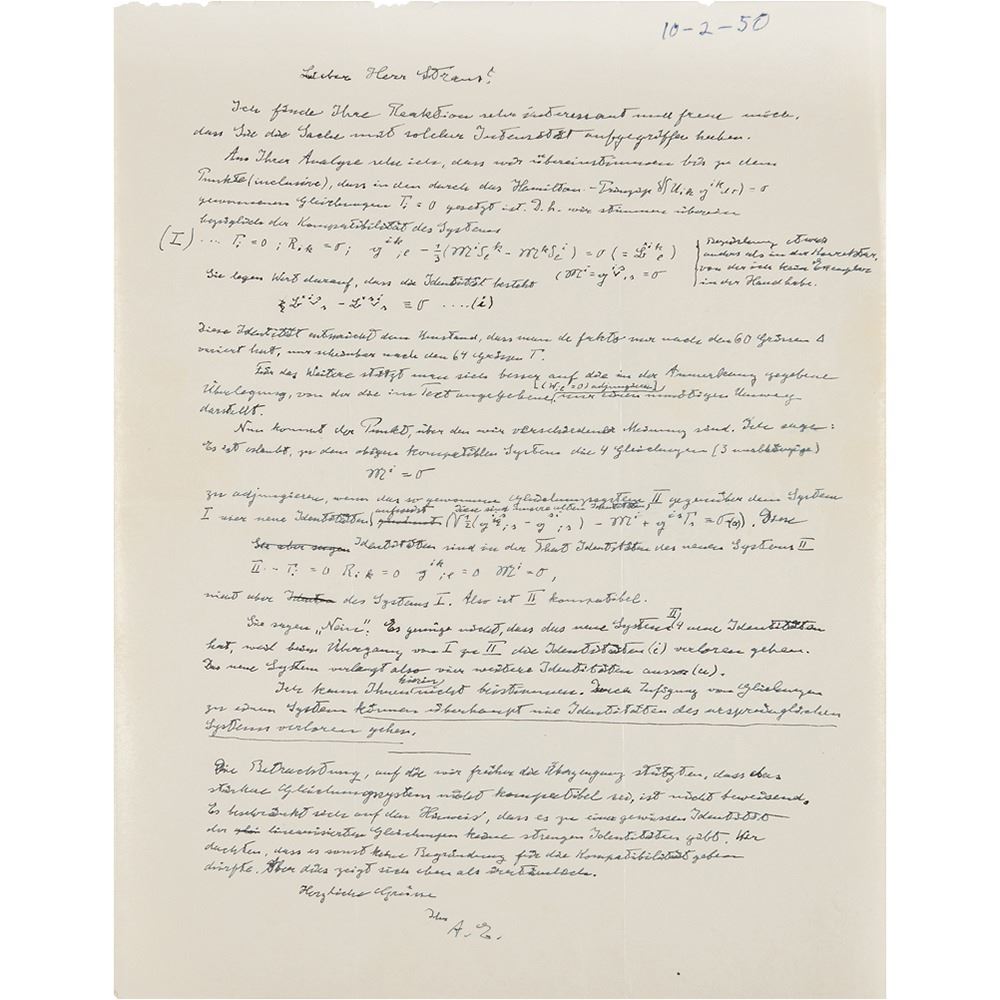 10-2-50
Lieber Herr Straus!
Ich finde Ihre Reaktion sehr interessant und freue mich,
dass Sie die Sache mit solcher Intensität aufgegriffen haben.
Aus Ihrer Analyse sehe ich, dass wir übereinstimmen bis zu dem
Punkte (inclusive), dass in den durch das Hamilton-Prinzip
gewonnenen Gleichungen Γi = 0 gesetzt ist. D.h. wir stimmen überein
bezüglich der Kompatibilität des Systems
(I) ... Γi = 0; Rik = 0;
Bezeichnung etwas
anders als in der Korrektur,
von der ich kein Exemplar
in der Hand habe.
Sie legen Wert darauf, dass die Identität besteht
≡ 0 ....(i)
Diese Identität entspricht dem Umstand, dass man de facto nur nach den 60 Grössen Δ
variiert hat, nur scheinbar nach den 64 Grössen Γ.
Für das Weitere stützt man sich besser auf die in der Anmerkung gegebene
Überlegung, von der die im Text angegebene nur einen unnötigen Umweg
darstellt.
Nun kommt der Punkt, über den wir verschiedener Meinung sind. Ich sage:
Es ist erlaubt, zu dem obigen kompatibeln Systeme die 4 Gleichungen (3 unabhängige)
Mi = 0
zu adjungieren, wenn das so gewonnene Gleichungssystem II gegenüber dem System
I vier neue Identitäten aufweist. Diese
Identitäten sind in der That Identitäten des neuen Systems II
II.. Γi = 0 Rik = 0 gik;l = 0 Mi = 0,
nicht aber des Systems I. Also ist II kompatibel.
Sie sagen „Nein": Es genüge nicht, dass das neue System II 4 neue Identitäten
hat, weil beim Übergang von I zu II die Identitäten (i) verloren gehen.
Das neue System verlangt also vier weitere Identitäten ausser (u).
Ich kann Ihnen hierin nicht beistimmen. Durch Zufügung von Gleichungen
zu einem System können überhaupt nie Identitäten des ursprünglichen
Systems verloren gehen.
Die Betrachtung, auf die wir früher die Überzeugung stützten, dass das
starke Gleichungssystem nicht kompatibel sei, ist nicht beweisend.
Es beschränkt sich auf den Hinweis, dass es zu einer gewissen Identität
der linearisierten Gleichungen keine strengen Identitäten gibt. Wir
dachten, dass es sonst keine Begründung für die Kompatibilität geben
dürfte. Aber dies zeigt sich eben als irrtümlich.
Herzliche Grüsse
Ihr
A. E.